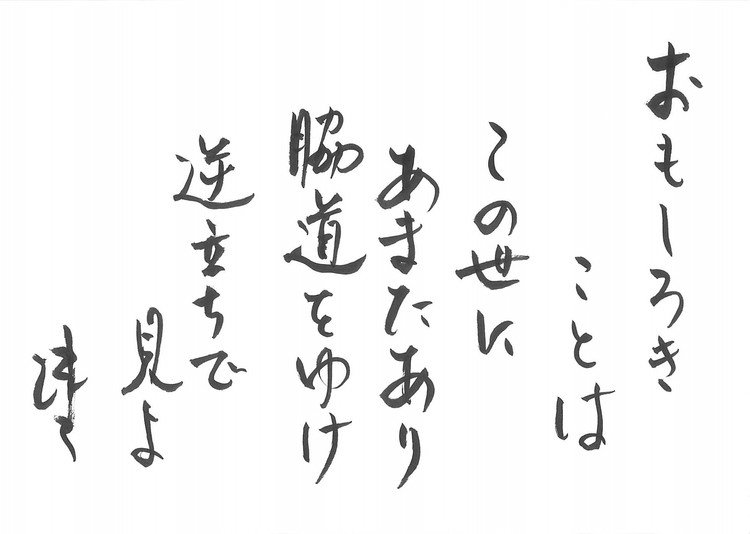 おもしろき
ことは
この世に
あまたあり
脇道をゆけ
逆立ちで
見よ